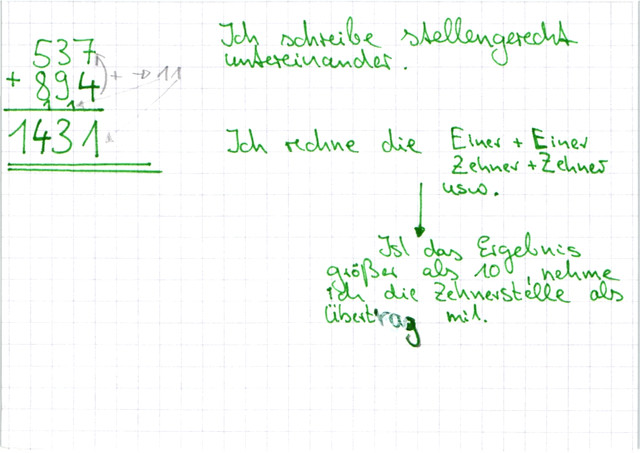 537
+ 894
+ → 11
1 1
1431
Ich schreibe stellengerecht
untereinander.
Ich rechne die Einer + Einer
Zehner + Zehner
usw.
Ist das Ergebnis
größer als 10, nehme
ich die Zehnerstelle als
Übertrag mit.